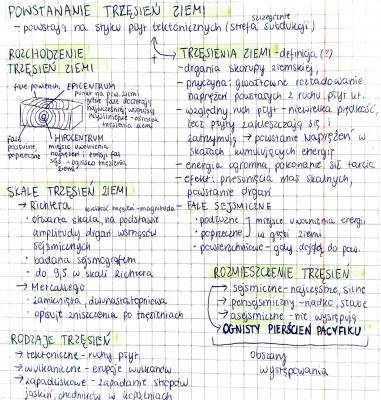 POWSTAWANIE TRZĘSIEŃ ZIEMI
szczególnie
- powstają na styku płyt tektonicznych (strefa subdukcji)
ROZCHODZENIE
TRZĘSIEŃ ZIEMI
fale powierzch. EPICENTRUM
punkt na pow. ziemi
gdzie fale docierają
najwcześniej, wstrząsy
najsilniejsze
trzęsienia ziemi
HIPOCENTRUM
miejsce uwolnienia
naprężeń i emisji fal
ognisko trzęsienia
ziemi
fale
podłużne,
poprzeczne
TRZĘSIENIA ZIEMI - definicja (?)
- drgania skorupy ziemskiej,
- przyczyna: gwałtowne rozładowanie
naprężeń powstałych z ruchu płyt lit.
- względny ruch płyt - niewielka prędkość,
lecz płyty zakleszczają się,
zatrzymują → powstanie naprężeń w
skałach kumulujących energię
- energia ogromna, pokonanie sił tarcia
- efekt: przesunięcia mas skalnych,
powstanie drgań
- FALE SEJSMICZNE
· podłużne
· poprzeczne
miejsce uwolnienia energii
w głębi ziemi
· powierzchniowe - gdy dojdą do pow.
SKALE TRZĘSIEŃ ZIEMI
→ Richtera
wielkość trzęsień - magnituda
· otwarta skala, na podstawie
amplitudy drgań wstrząsów
sejsmicznych
· badana sejsmografem
· do 9,5 w skali Richtera
→ Mercallego
· zamknięta, dwunastostopniowa
· opisuje zniszczenia po trzęsieniach
ROZMIESZCZENIE TRZĘSIEŃ
→ sejsmiczne - najczęstsze, silne
→ pensejsmiczny - rzadko, słabe
→ asejsmiczne - nie występują
OGNISTY PIERŚCIEŃ PACYFIKU
obszary
występowania
RODZAJE TRZĘSIEŃ
→ tektoniczne - ruchy płyt
→ wulkaniczne - erupcje wulkanów
→ zapadliskowe - zapadanie stropów
jaskiń, chodników w kopalniach